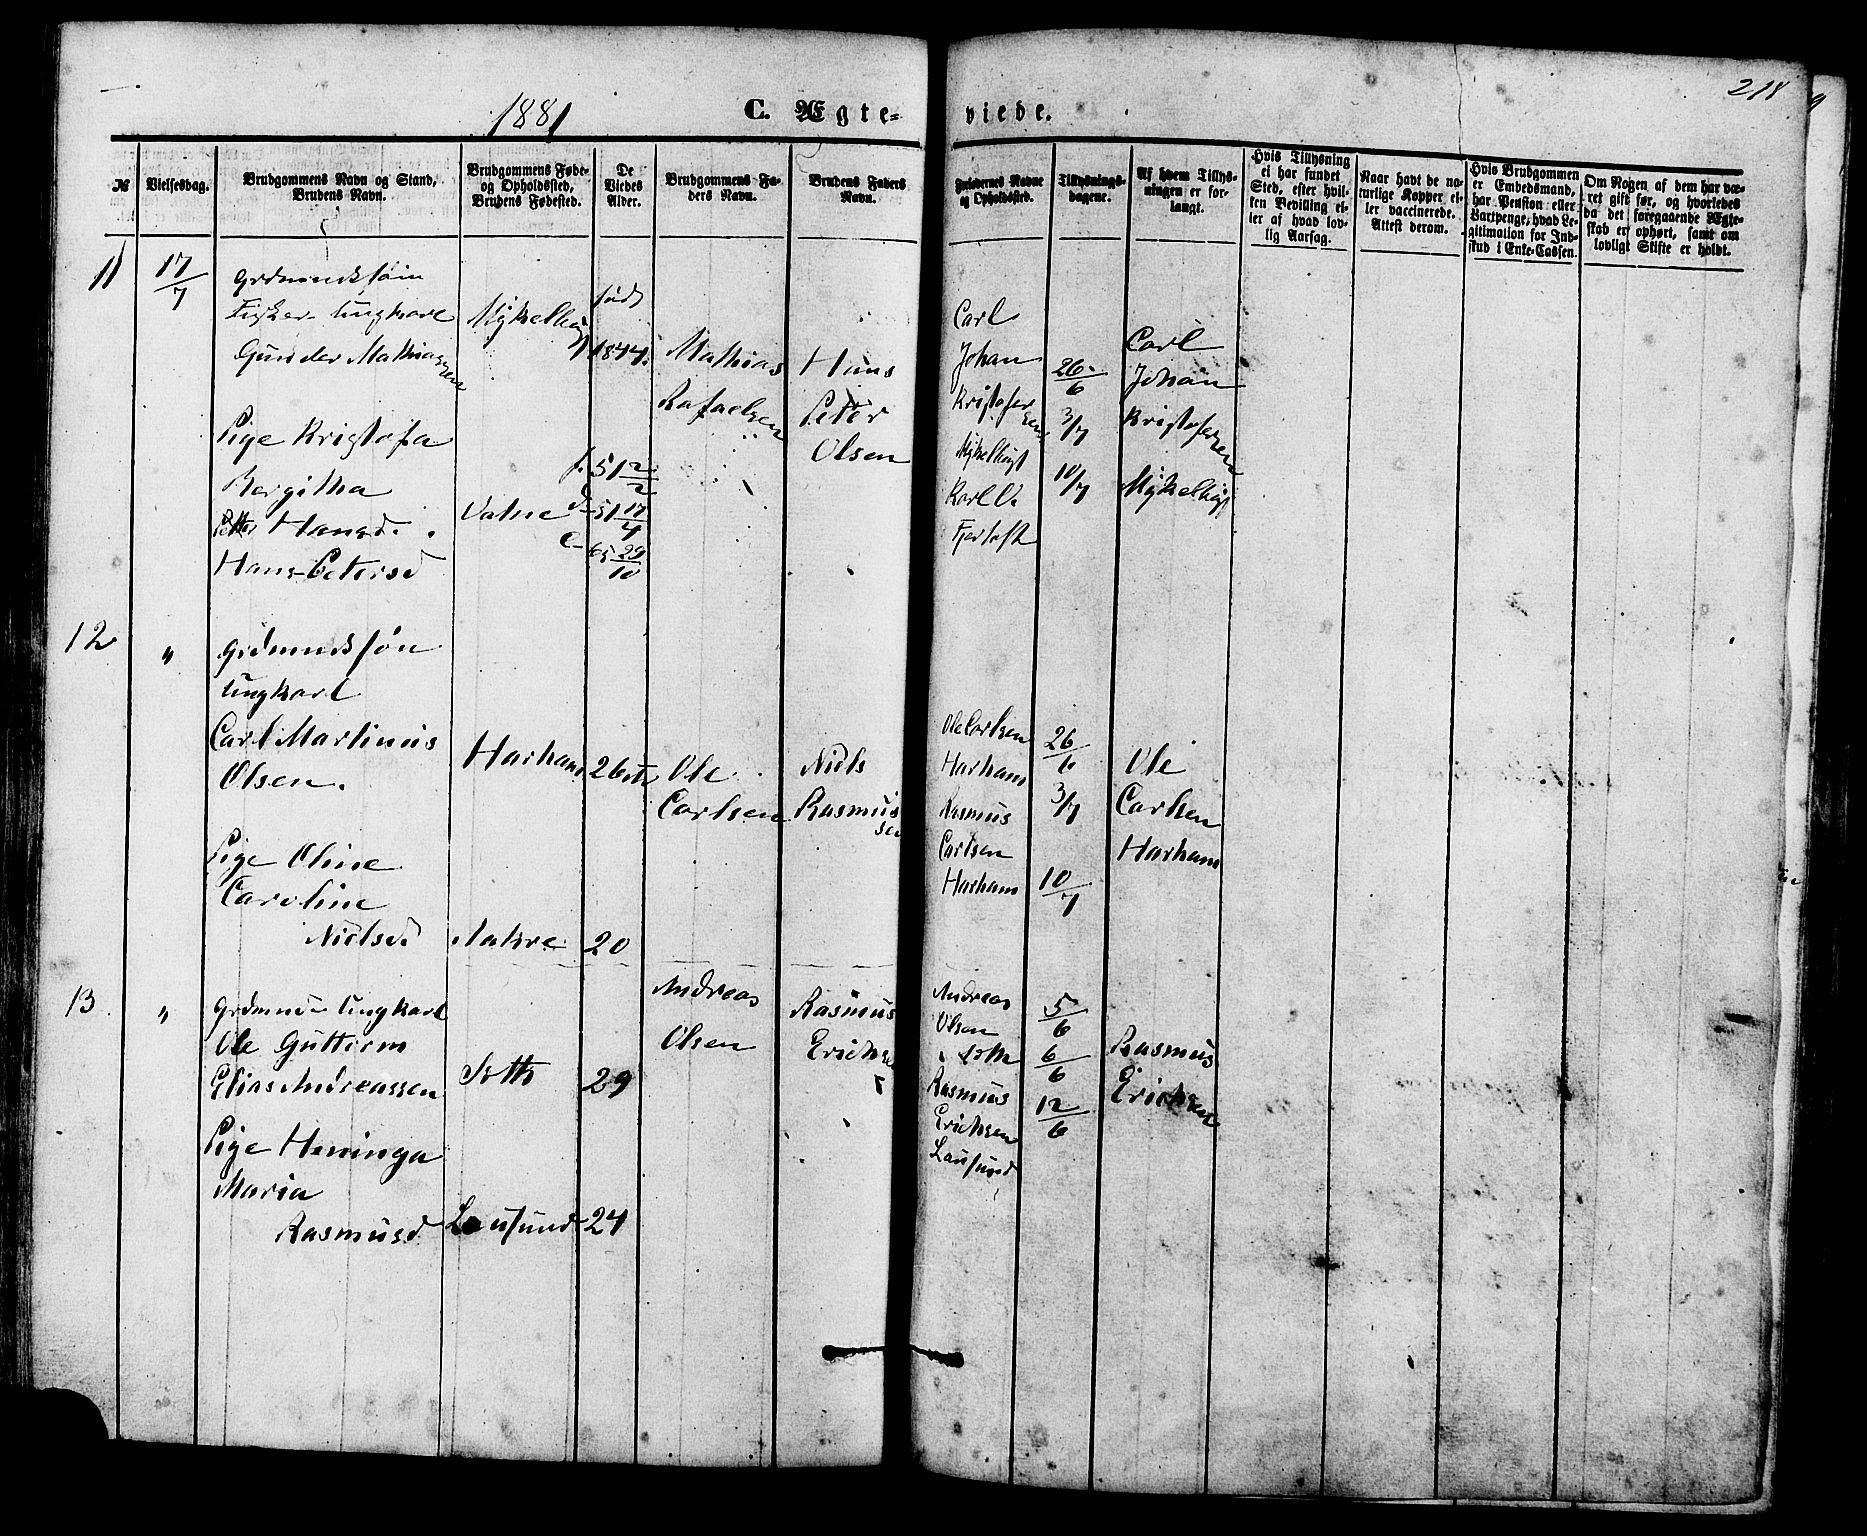 1881
C. Ægte-
viede.
218
№
Vielsesdag.
Brudgommens Navn og Stand,
Brudens Navn.
Brudgommens Føde-
og Opholdssted,
Brudens Fødested.
De
Viedes
Alder.
Brudgommens Fa-
ders Navn.
Brudens Faders
Navn.
Forlovernes Navne
og Opholdssted.
Tillysnings-
dagene.
Af hvem Tillys-
ningen er for-
langt.
Hvis Tillysning
ei har fundet
Sted, efter hvil-
ken Bevilling el-
ler af hvad lov-
lig Aarsag.
Naar havt de na-
turlige Kopper el-
ler vaccinerede.
Attest derom.
Hvis Brudgommen
er Embedsmand,
har Pension eller
Vartpenge, hvad Le-
gitimation for Ind-
skud i Enke-Cassen.
Om Nogen af dem har væ-
ret gift før, og hvorledes
da det foregaaende Ægte-
skab er ophørt, samt om
lovligt Skifte er holdt.
11
17/7
Fisker Ungkarl
Gunder Mathiassen
født
1844.
Mathias
Rafaelsen
Hans
Peter
Olsen
Carl
Johan
Kristofersen
26/6
3/7
10/7
Carl
Johan
Kristofersen
Pige Kristofa
Bergitha
Hansd.
Hans Petersd
Vatne
f. 51 2/2
d 51 17/4
c 65 29/10
Karl O.
Fjertoft
12
"
Ungkarl
Carl Martinus
Olsen.
Harham
26
Ole
Carlsen
Niels
Rasmussen
Ole Carlsen
Harham
Rasmus
Carlsen
Harham
26/6
3/7
10/7
Ole
Carlsen
Harham
Pige Oline
Caroline
Nielsd.
20
13
"
Ungkarl
Ole Guttorm
Elias Andreassen
29
Andreas
Olsen
Rasmus
Erichsen
Andreas
Olsen
Rasmus
Erichsen
Lausund
5/6
6/6
12/6
Rasmus
Erichsen
Pige Henninga
Maria
Rasmusd
Lausund
24